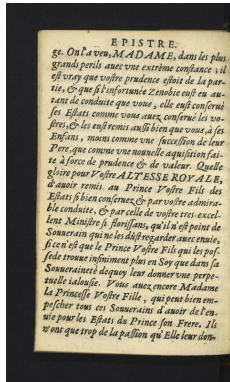 EPISTRE.
ge. On l'a veu, MADAME, dans les plus
grands perils avec vne extréme constance ; il
est vray que vostre prudence estoit de la par-
tie, & que si l'infortunée Zenobie eust eu au-
tant de conduite que vous, elle eust conserué
ses Estats comme vous auez conserué les vo-
stres, & les eust remis aussi bien que vous, à ses
Enfans, moins comme vne succession de leur
Pere, que comme vne nouvelle aquisition fai-
te à force de prudence & de valeur. Quelle
gloire pour Vostre ALTESSE ROYALE,
d'auoir remis au Prince Vostre Fils des
Estats si bien conseruez, & par vostre admira-
ble conduite, & par celle de vostre tres-excel-
lent Ministre si florissans, qu'il n'est point de
Souuerain qui ne les dûst regarder auec enuie,
si ce n'est que le Prince Vostre Fils qui les pos-
sede trouue infiniment plus en Soy que dans sa
Souueraineté dequoy leur donner vne perpe-
tuelle ialousie. Vous auez encore Madame
la Princesse Vostre Fille, qui peut bien em-
pescher tous ces Souuerains d'auoir de l'en-
uie pour les Estats du Prince son Frere. Ils
n'ont que trop de la passion qu'Elle leur don-